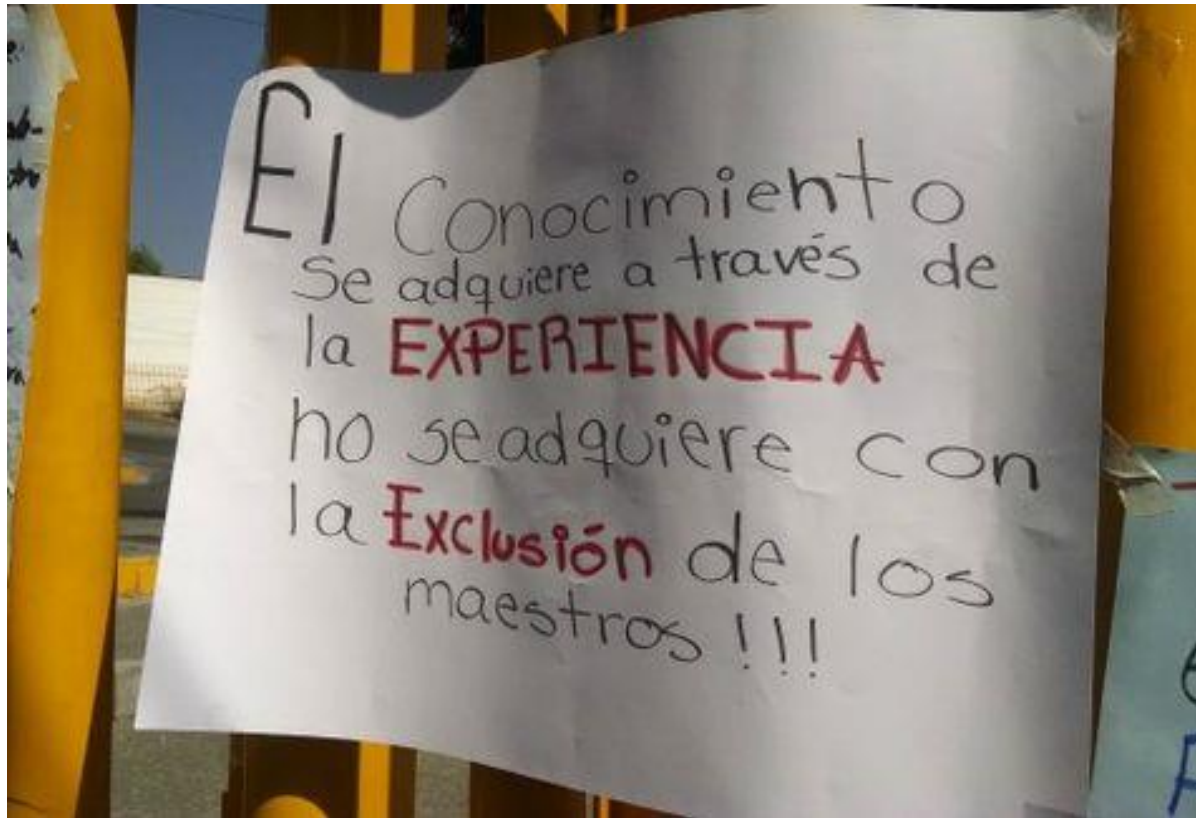 El Conocimiento
se adquiere a través de
la EXPERIENCIA
no se adquiere con
la Exclusión de los
maestros !!!